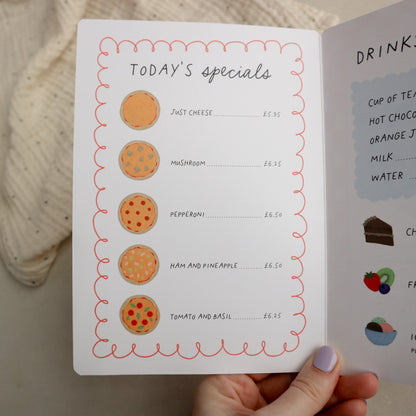 TODAY'S specials
JUST CHEESE ............ £5.95
MUSHROOM ............ £6.25
PEPPERONI ............ £6.50
HAM AND PINEAPPLE ........ £6.50
TOMATO AND BASIL ........ £6.25
DRINKS
CUP OF TEA
HOT CHOCO
ORANGE J
MILK .....
WATER ...
CH
FR